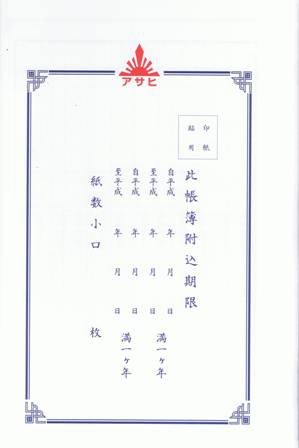 アサヒ
印紙
貼用
此帳簿附込期限
自平成 年 月 日
至平成 年 月 日
満一ヶ年
自平成 年 月 日
至平成 年 月 日
満一ヶ年
紙数小口 枚